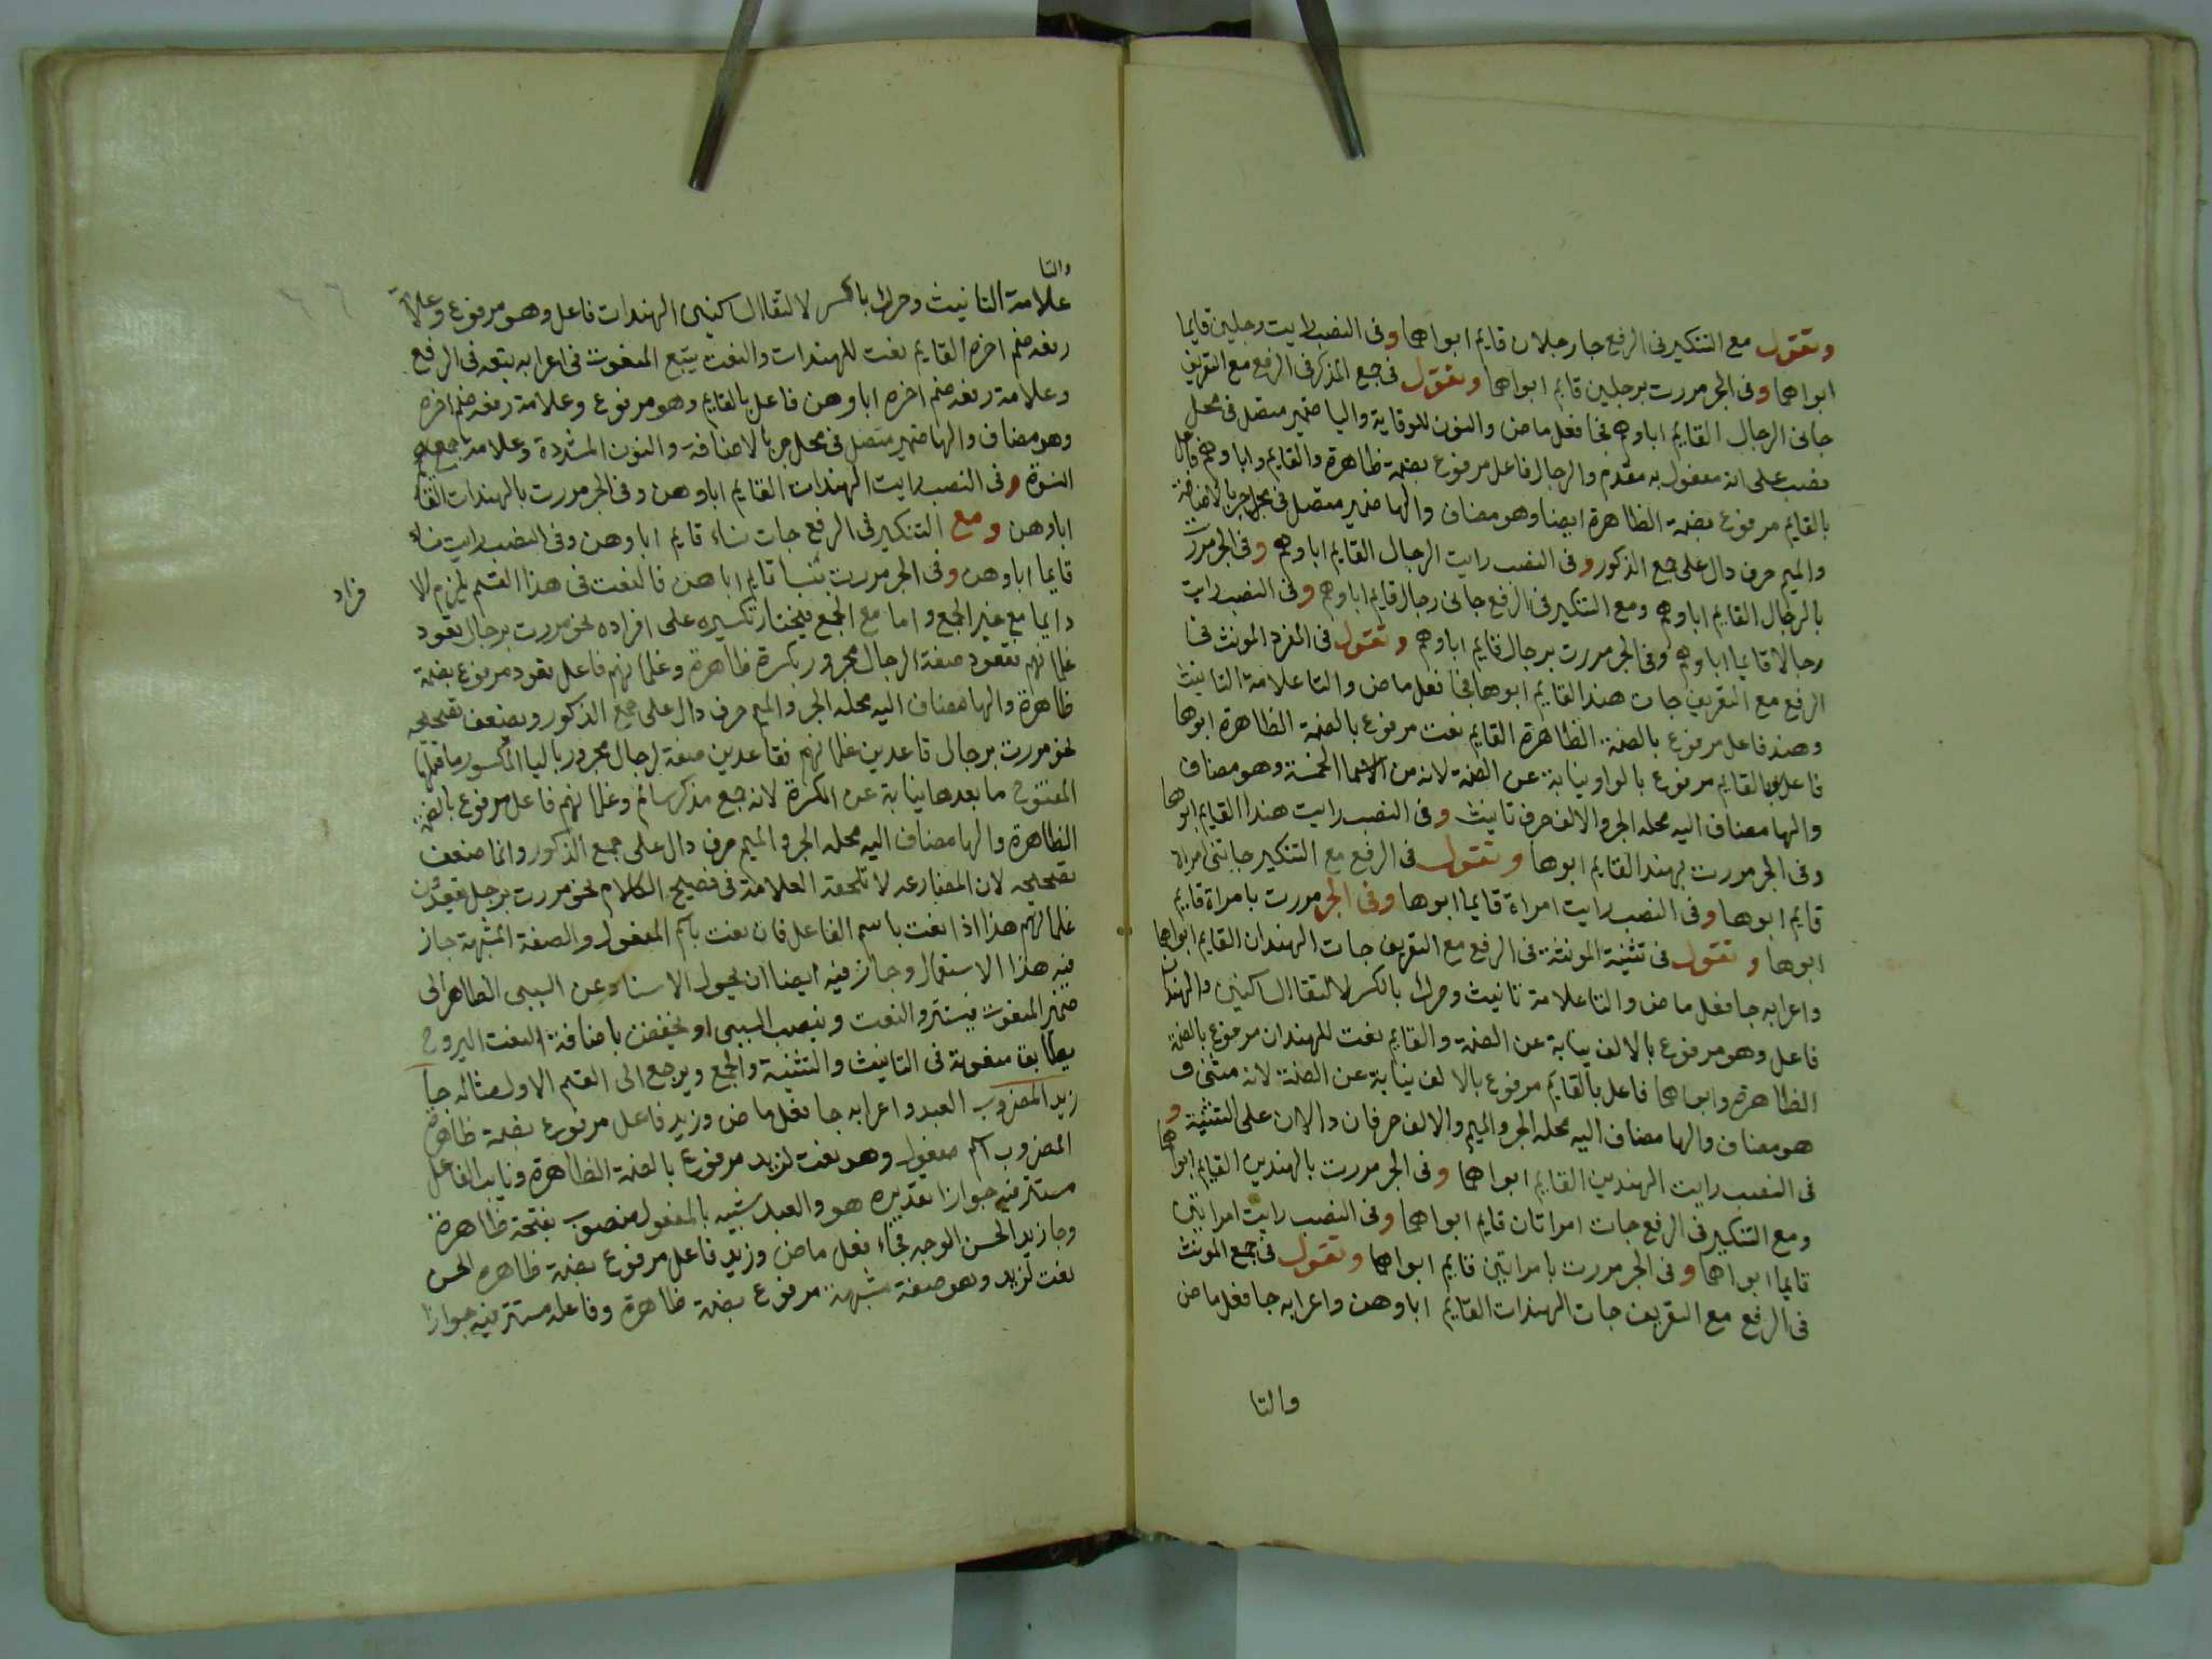 وتقول مع التنكير فى الرفع جا رجلان قايم ابواهما وفى النصب رايت رجلين قايما
ابواهما وفى الجر مررت برجلين قايم ابواهما وتقول فى جمع المذكر فى الرفع مع التعريف
جانى الرجال القايم اباوهم فجا فعل ماض والنون للوقاية واليا ضمير متصل فى محل
نصب على انه مفعول به مقدم والرجال فاعل مرفوع بضمة ظاهرة والقايم واباوهم فاعل
بالقايم مرفوع بضمة الظاهرة ايضا وهو مضاف والها ضمير متصل فى محل جر بالاضافة
والميم حرف دال على جمع الذكور وفى النصب رايت الرجال القايم اباوهم وفى الجر مررت
بالرجال القايم اباوهم ومع التنكير فى الرفع جانى رجال قايم اباوهم وفى النصب رايت
رجالا قايما اباوهم وفى الجر مررت برجال قايم اباوهم وتقول فى المفرد المونث فى
الرفع مع التعريف جات هند القايم ابوها فجا فعل ماض والتا علامة التانيث
وهند فاعل مرفوع بالضمة الظاهرة القايم نعت مرفوع بالضمة الظاهرة ابوها
فاعل بالقايم مرفوع بالواو نيابة عن الضمة لانه من الاسما الخمسة وهو مضاف
والها مضاف اليه محله الجر والالف حرف تانيث وفى النصب رايت هندا القايم ابوها
وفى الجر مررت بهند القايم ابوها وتقول فى الرفع مع التنكير جاتنى امراة
قايم ابوها وفى النصب رايت امراة قايما ابوها وفى الجر مررت بامراة قايم
ابوها وتقول فى تثنية المونثة فى الرفع مع التعريف جات الهندان القايم ابواهما
واعرابه جا فعل ماض والتا علامة تانيث وحرك بالكسر لالتقا الساكنين والهندان
فاعل وهو مرفوع بالالف نيابة عن الضمة والقايم نعت للهندان مرفوع بالضمة
الظاهرة وابواهما فاعل بالقايم مرفوع بالالف نيابة عن الضمة لانه مثنى و
هو مضاف والها مضاف اليه محله الجر والميم والالف حرفان دالان على التثنية و
فى النصب رايت الهندين القايم ابواهما وفى الجر مررت بالهندين القايم ابواهما
ومع التنكير فى الرفع جات امراتان قايم ابواهما وفى النصب رايت امراتين
قايما ابواهما وفى الجر مررت بامراتين قايم ابواهما وتقول فى جمع المونث
فى الرفع مع التعريف جات الهندات القايم اباوهن واعرابه جا فعل ماض
والتا
والتا
علامة التانيث وحرك بالكسر لالتقا الساكنين الهندات فاعل وهو مرفوع وعلامة
رفعه ضم اخره القايم نعت للهندات والنعت يتبع المنعوت فى اعرابه يتبعه فى الرفع
وعلامة رفعه ضم اخره اباوهن فاعل بالقايم وهو مرفوع وعلامة رفعه ضم اخره
وهو مضاف والها ضمير متصل فى محل جر بالاضافة والنون المشددة وعلامة جمع
النسوة وفى النصب رايت الهندات القايم اباوهن وفى الجر مررت بالهندات القايم
اباوهن ومع التنكير فى الرفع جات نساء قايم اباوهن وفى النصب رايت نساء
قايما اباوهن وفى الجر مررت بنسا قايم اباهن فالنعت فى هذا القسم يلزم الا
فراد
دايما مع غير الجمع واما مع الجمع فيختار تكسيره على افراده نحو مررت برجال قعود
غلمانهم فقعود صفة الرجال مجرور بكسرة ظاهرة وغلمانهم فاعل بقعود مرفوع بضمة
ظاهرة والها مضاف اليه محله الجر والميم حرف دال على جمع الذكور ويضعف تصحيحه
نحو مررت برجال قاعدين غلمانهم فقاعدين صفة لرجال مجرور باليا المكسور ما قبلها
المفتوح ما بعدها نيابة عن الكسرة لانه جمع مذكر سالم وغلمانهم فاعل مرفوع بالضمة
الظاهرة والها مضاف اليه محله الجر والميم حرف دال على جمع الذكور وانما ضعف
تصحيحه لان المضارعه لا تلحقه العلامة فى فصيح الكلام نحو مررت برجل يقعدون
غلمانهم هذا اذا نعت باسم الفاعل فان نعت باسم المفعول والصفة المشبهة جاز
فيه هذا الاستعمال وجاز فيه ايضا ان يحول الاسناد عن السببى الظاهر الى
ضمير المنعوت فيستتر والنعت وينصب السببى او يخفض باضافة النعت اليه وح
يطابق منعوته فى التانيث والتثنية والجمع ويرجع الى القسم الاول مثاله جا
زيد المضروب العبد واعرابه جا فعل ماض وزيد فاعل مرفوع بضمة ظاهرة
المضروب اسم مفعول وهو نعت لزيد مرفوع بالضمة الظاهرة ونايب الفاعل
مستتر فيه جوازا تقديره هو والعبد شبيه بالمفعول منصوب بفتحة ظاهرة
وجا زيد الحسن الوجه فجاء فعل ماض وزيد فاعل مرفوع بضمة ظاهره الحسن
نعت لزيد وهو صفة مشبهة مرفوع بضمة ظاهرة وفاعله مستتر فيه جوازا